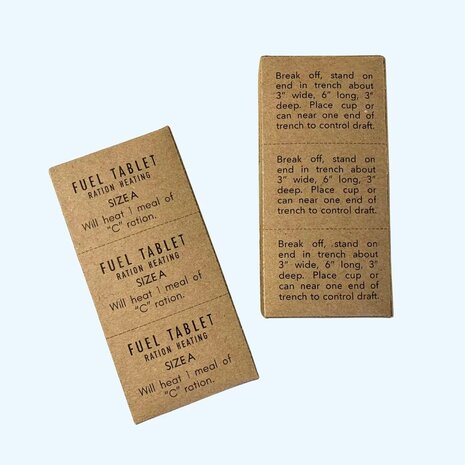 FUEL TABLET
RATION HEATING
SIZE A
Will heat 1 meal of
"C" ration.
FUEL TABLET
RATION HEATING
SIZE A
Will heat 1 meal of
"C" ration.
FUEL TABLET
RATION HEATING
SIZE A
Will heat 1 meal of
"C" ration.
Break off, stand on
end in trench about
3" wide, 6" long, 3"
deep. Place cup or
can near one end of
trench to control draft.
Break off, stand on
end in trench about
3" wide, 6" long, 3"
deep. Place cup or
can near one end of
trench to control draft.
Break off, stand on
end in trench about
3" wide, 6" long, 3"
deep. Place cup or
can near one end of
trench to control draft.